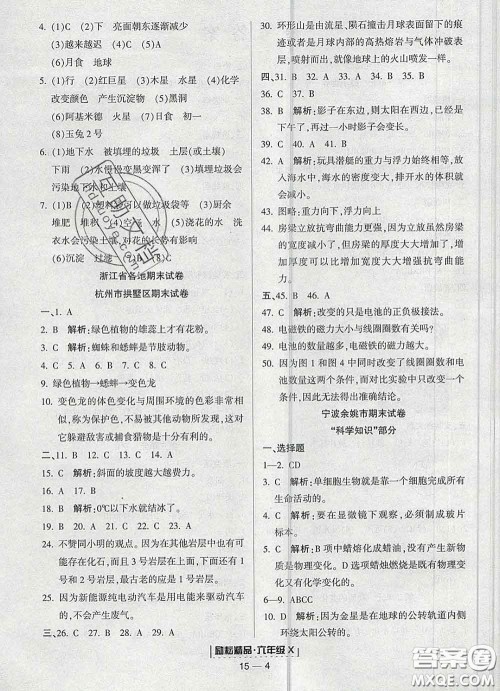 4. (1)C (2)下 亮面朝东逐渐减少
(3)越来越迟 (4)A (5)C
(6)月食 地球
5. (1)行 (2)红 木星 星系 (4)化学
改变颜色 产生沉淀物 (5)黑洞
(6)阿基米德 木星 (7)日食 初一
(8)玉兔2号
6. (1)地下水 被填埋的垃圾 土层(或土壤)
下雨 (2)水慢慢变黑变浑了 (3)填埋垃圾会
污染地下水和土壤
7. (1)B (2)塑料 可以做垃圾袋等 (3)厨余
堆肥 堆肥 (4)空气 水 (5)浇花的水 洗
衣水会污染土壤,对花的长势有影响
(6)沉淀 过滤
浙江省各地期末试卷
杭州市拱墅区期末试卷
一、1. A
2. B 解析:绿色植物的雄蕊上才有花粉。
3. C 解析:蜘蛛和蟋蟀是节肢动物。
4. C 5. A 6. C 7. C 8. B
9. 绿色植物→蟋蟀→变色龙
10. 变色龙的体色变化与周围环境的色彩非常相
似,称为保护色,不容易被发现,对于它们
躲避敌害或捕食猎物是十分有利的。
二、11. B 12. B 13. C 14. C
15. C 解析:斜面的坡度越大越费力。
16. A 17. A
18. B 解析:0℃以下水就结冰了。
19. B 20. B 21. A 22. C 23. A
24. 不赞同小明的观点。因为大自然中岩石也在
变化,而且3号岩层在上面,下面还有1号
岩层和2号岩层,最古老的应是1号岩层。
25. 因为新能源纯电动汽车是用电能来驱动小车
的,不会产生废气。
三、26. C 27. A 28. A 29. C
30. 环形山是由流星、陨石撞击月球表面留下的坑,
或者是月球内部的高热熔岩与气体冲破表
层,喷射而出,就像地球上的火山喷发一样。
四、31. B 32. A 33. A 34. B 35. A
36. C 37. C
38. B 解析:影子在东边,则太阳在西边,已经是
下午了,再过一小时影子会变长。
39. C 40. B 41. B
42. A 解析:玩具潜艇的重力与浮力始终相等,放
入海水中,海水的密度变大,排开水的体积
就会减小。
43. 图略:重力向下,浮力向上
44. C 房梁立放抗弯曲能力更强,因为立放虽然房梁
的宽度减小了,但厚度大大增加了,厚度增
加可以大大增加房梁的硬度,从而大大增强
抗弯曲能力。
五、45. B 46. A
47. C 解析:改变的只是电池的正负极接法。
48. 电磁铁的磁力大小与线圈圈数有关吗?
49. 线圈圈数越多,电磁铁的磁力越大。
50. 因为图1和图4中同时改变了线圈圈数和电
池数量这两个条件,而对比实验只改变一个条
件,因此无法得出结论。
宁波余姚市期末试卷
“科学知识”部分
一、选择题
1—2. CD
3. C 解析:单细胞生物都是靠一个细胞完成所有
生命活动的。
4. C 解析:要在显微镜下观察,必须制成玻片
标本。
5. C 解析:B项中蜡熔化成蜡油,没有产生新物
质是物理变化。D选项蜡烛燃烧是既有物理
变化又有化学变化。
6—9. ABCC
10. B 解析:金星是在地球的公转轨道内侧
环绕太阳公转的。
励耘精品·六年级X
15—4
答案圈
MXQE.COM